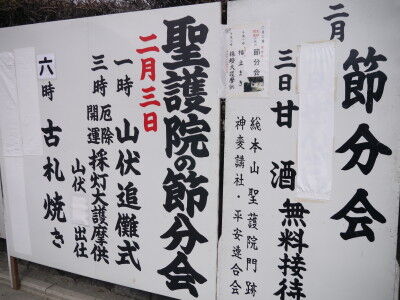 二月
節分会
三日 甘酒無料接待
総本山 聖護院門跡
神変講社・平安連合会
節分会
採燈大護摩供
聖護院の節分会
二月三日
一時 山伏追儺式
三時 厄除開運 採灯大護摩供
山伏出仕
六時 古札焼き